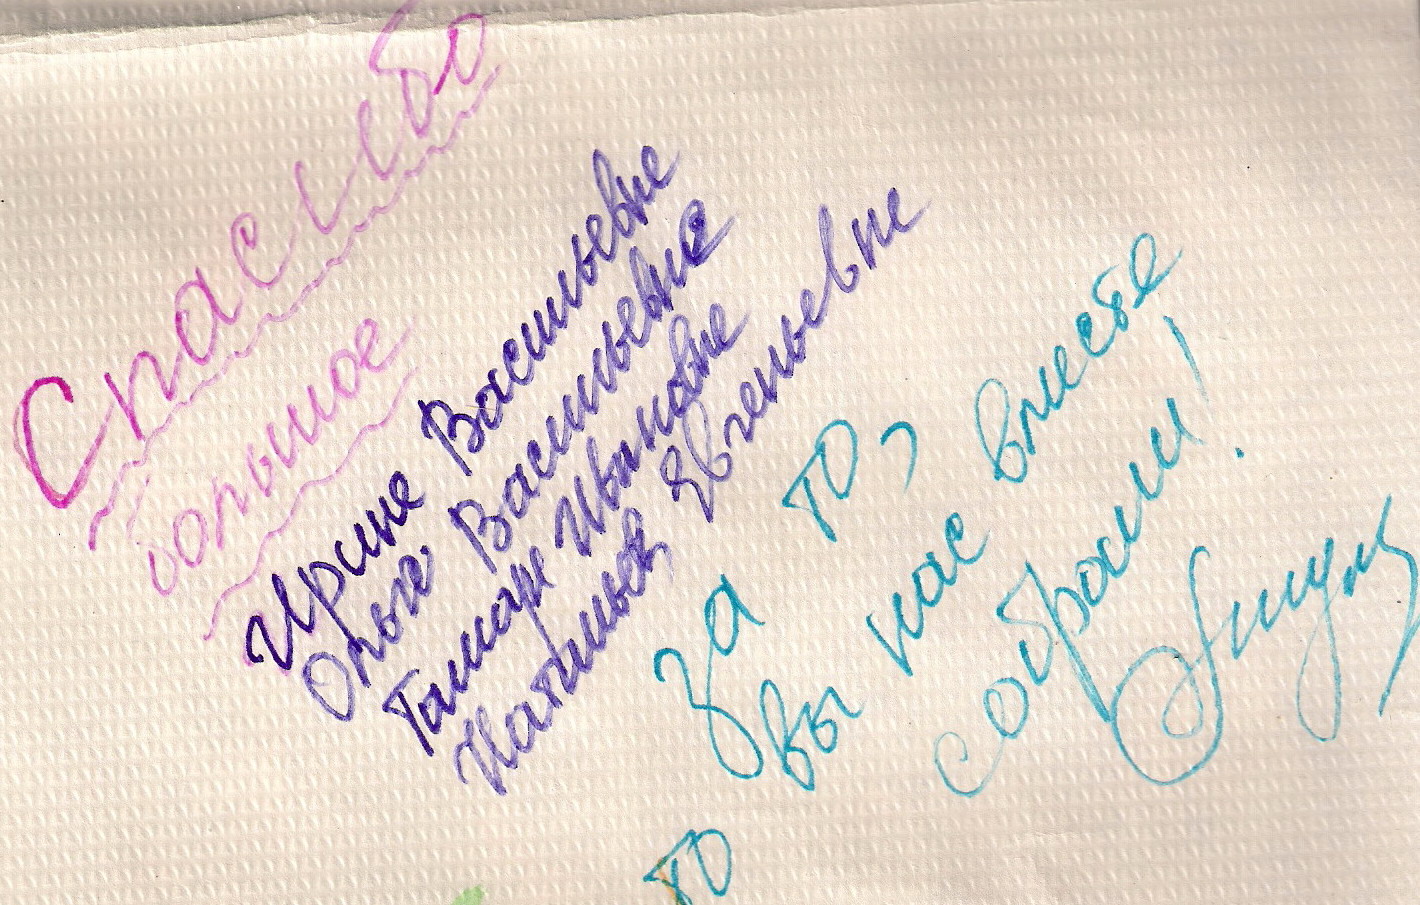 Спасибо
большое
Ирине Васильевне
Ольге Васильевне
Тамаре Ивановне
Наталье Евгеньевне
За то,
вы нас вместе
собрали!
то